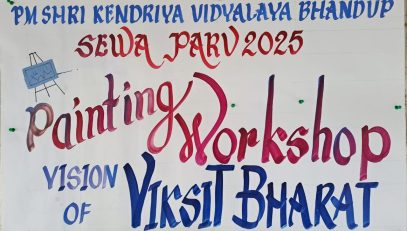 PM SHRI KENDRIYA VIDYALAYA BHANDUP
SEWA PARV 2025
Painting Workshop
VISION OF VIKSIT BHARAT